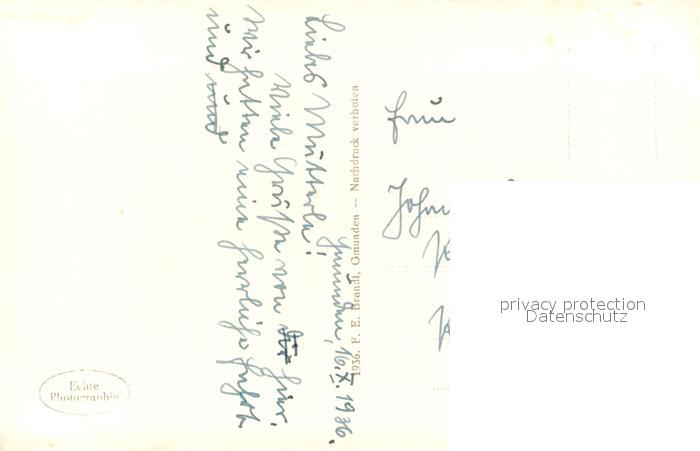 Gmunden, 16.X.1936.
Liebes Mutterle!
Viele Grüße von hier.
Wir hatten eine herrliche Fahrt
und
1936. F. E. Brandl, Gmunden — Nachdruck verboten
Frau
Echte
Photographie
privacy protection
Datenschutz